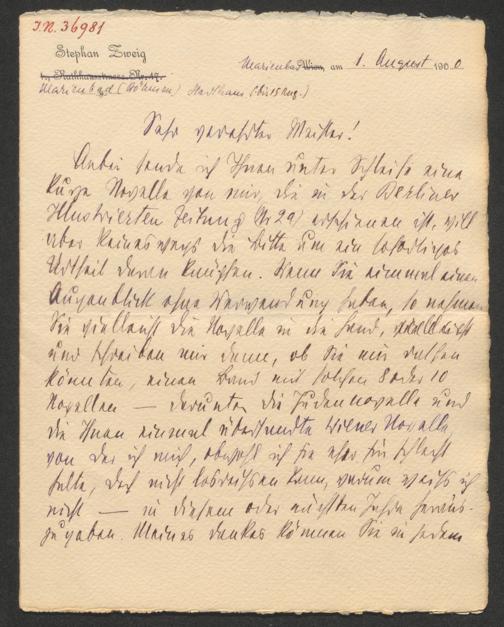 I.N. 36981
Stephan Zweig
I., Rathhausstrasse Nr. 17.
Marienbad Wien, am 1. August 1900
Marienbad (Böhmen) Stadthaus (bis 15 Aug.)
Sehr verehrter Meister!
Anbei sende ich Ihnen unter Schleife eine
kurze Novelle von mir, die in der Berliner
Illustrierten Zeitung (Nr 29) erschienen ist, will
aber keineswegs die Bitte um ein sofortiges
Urtheil daran knüpfen. Wenn Sie einmal einen
Augenblick ohne Verwendung haben, so nehmen
Sie vielleicht die Novelle in die Hand,
und schreiben mir dann, ob Sie mir rathen
könnten, einen Band mit solchen 8 oder 10
Novellen — darunter die Judennovelle und
die Ihnen einmal übersandte Wiener Novelle,
von der ich mich, obwohl ich sie eher für schlecht
halte, doch nicht losreissen kann, warum weiss ich
nicht — in diesem oder nächsten Jahre heraus-
zugeben. Meines Dankes können Sie in jedem